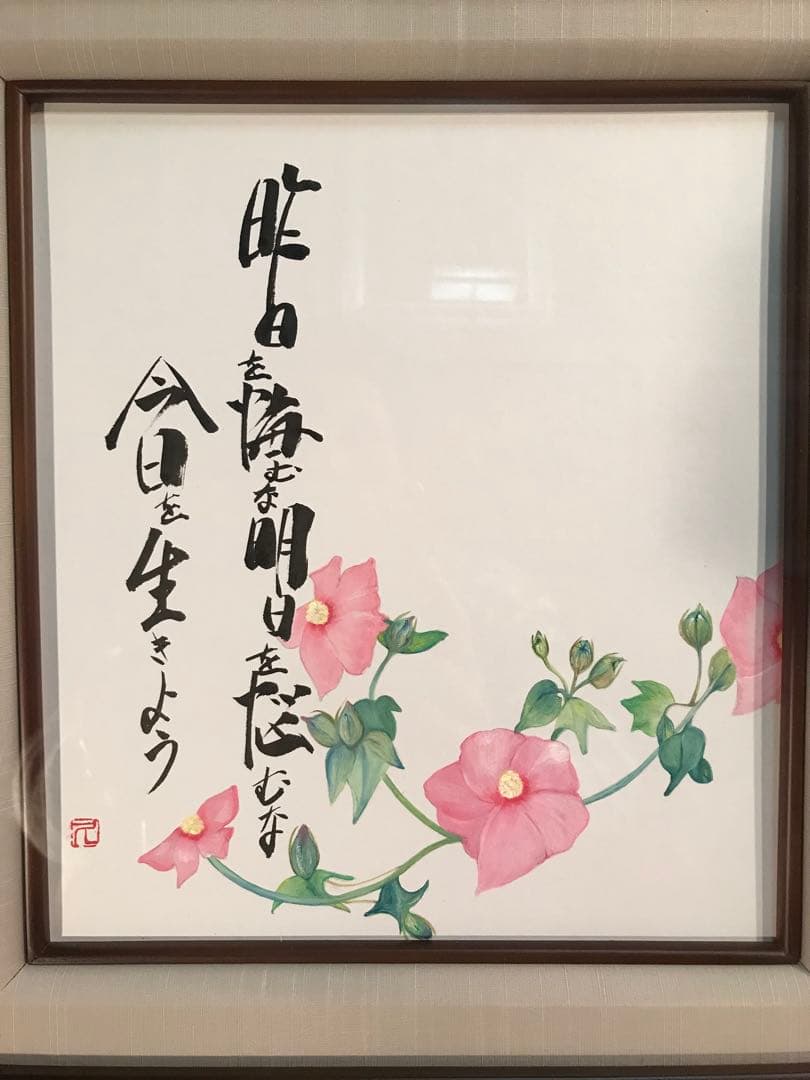 昨日を悔むな明日を悩むな
今日を生きよう